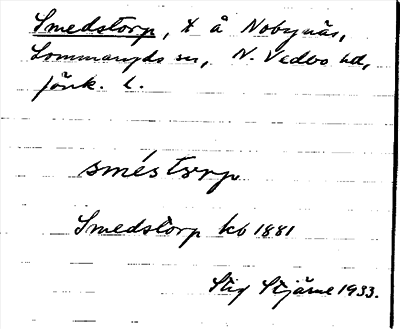 Smedstorp, t å Nobynäs,
Lommaryds sn, N. Vedbo hd,
Jönk. l.
smés tωrp
Smedstorp kb 1881
Stig Stjärne 1933.